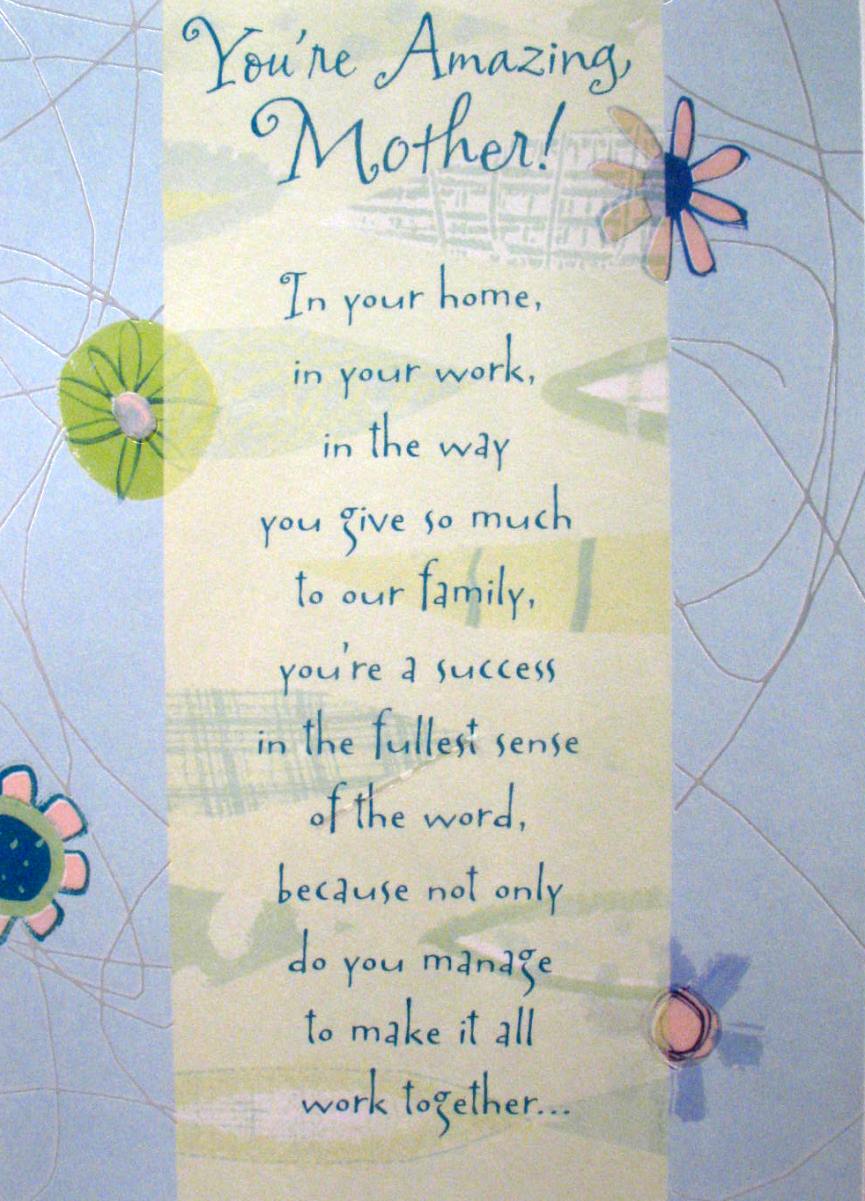 You're Amazing,
Mother!
In your home,
in your work,
in the way
you give so much
to our family,
you're a success
in the fullest sense
of the word,
because not only
do you manage
to make it all
work together...